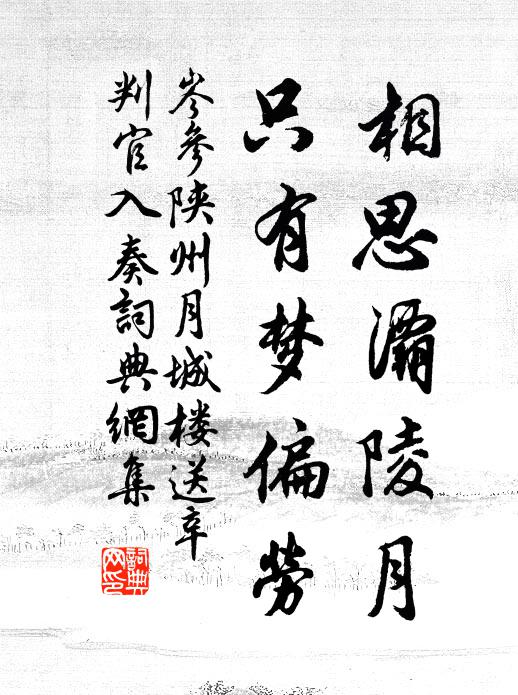 相思灞陵月
只有梦偏劳
岑参陕州月城楼送辛
判官入奏詞典網集
詞典
网印